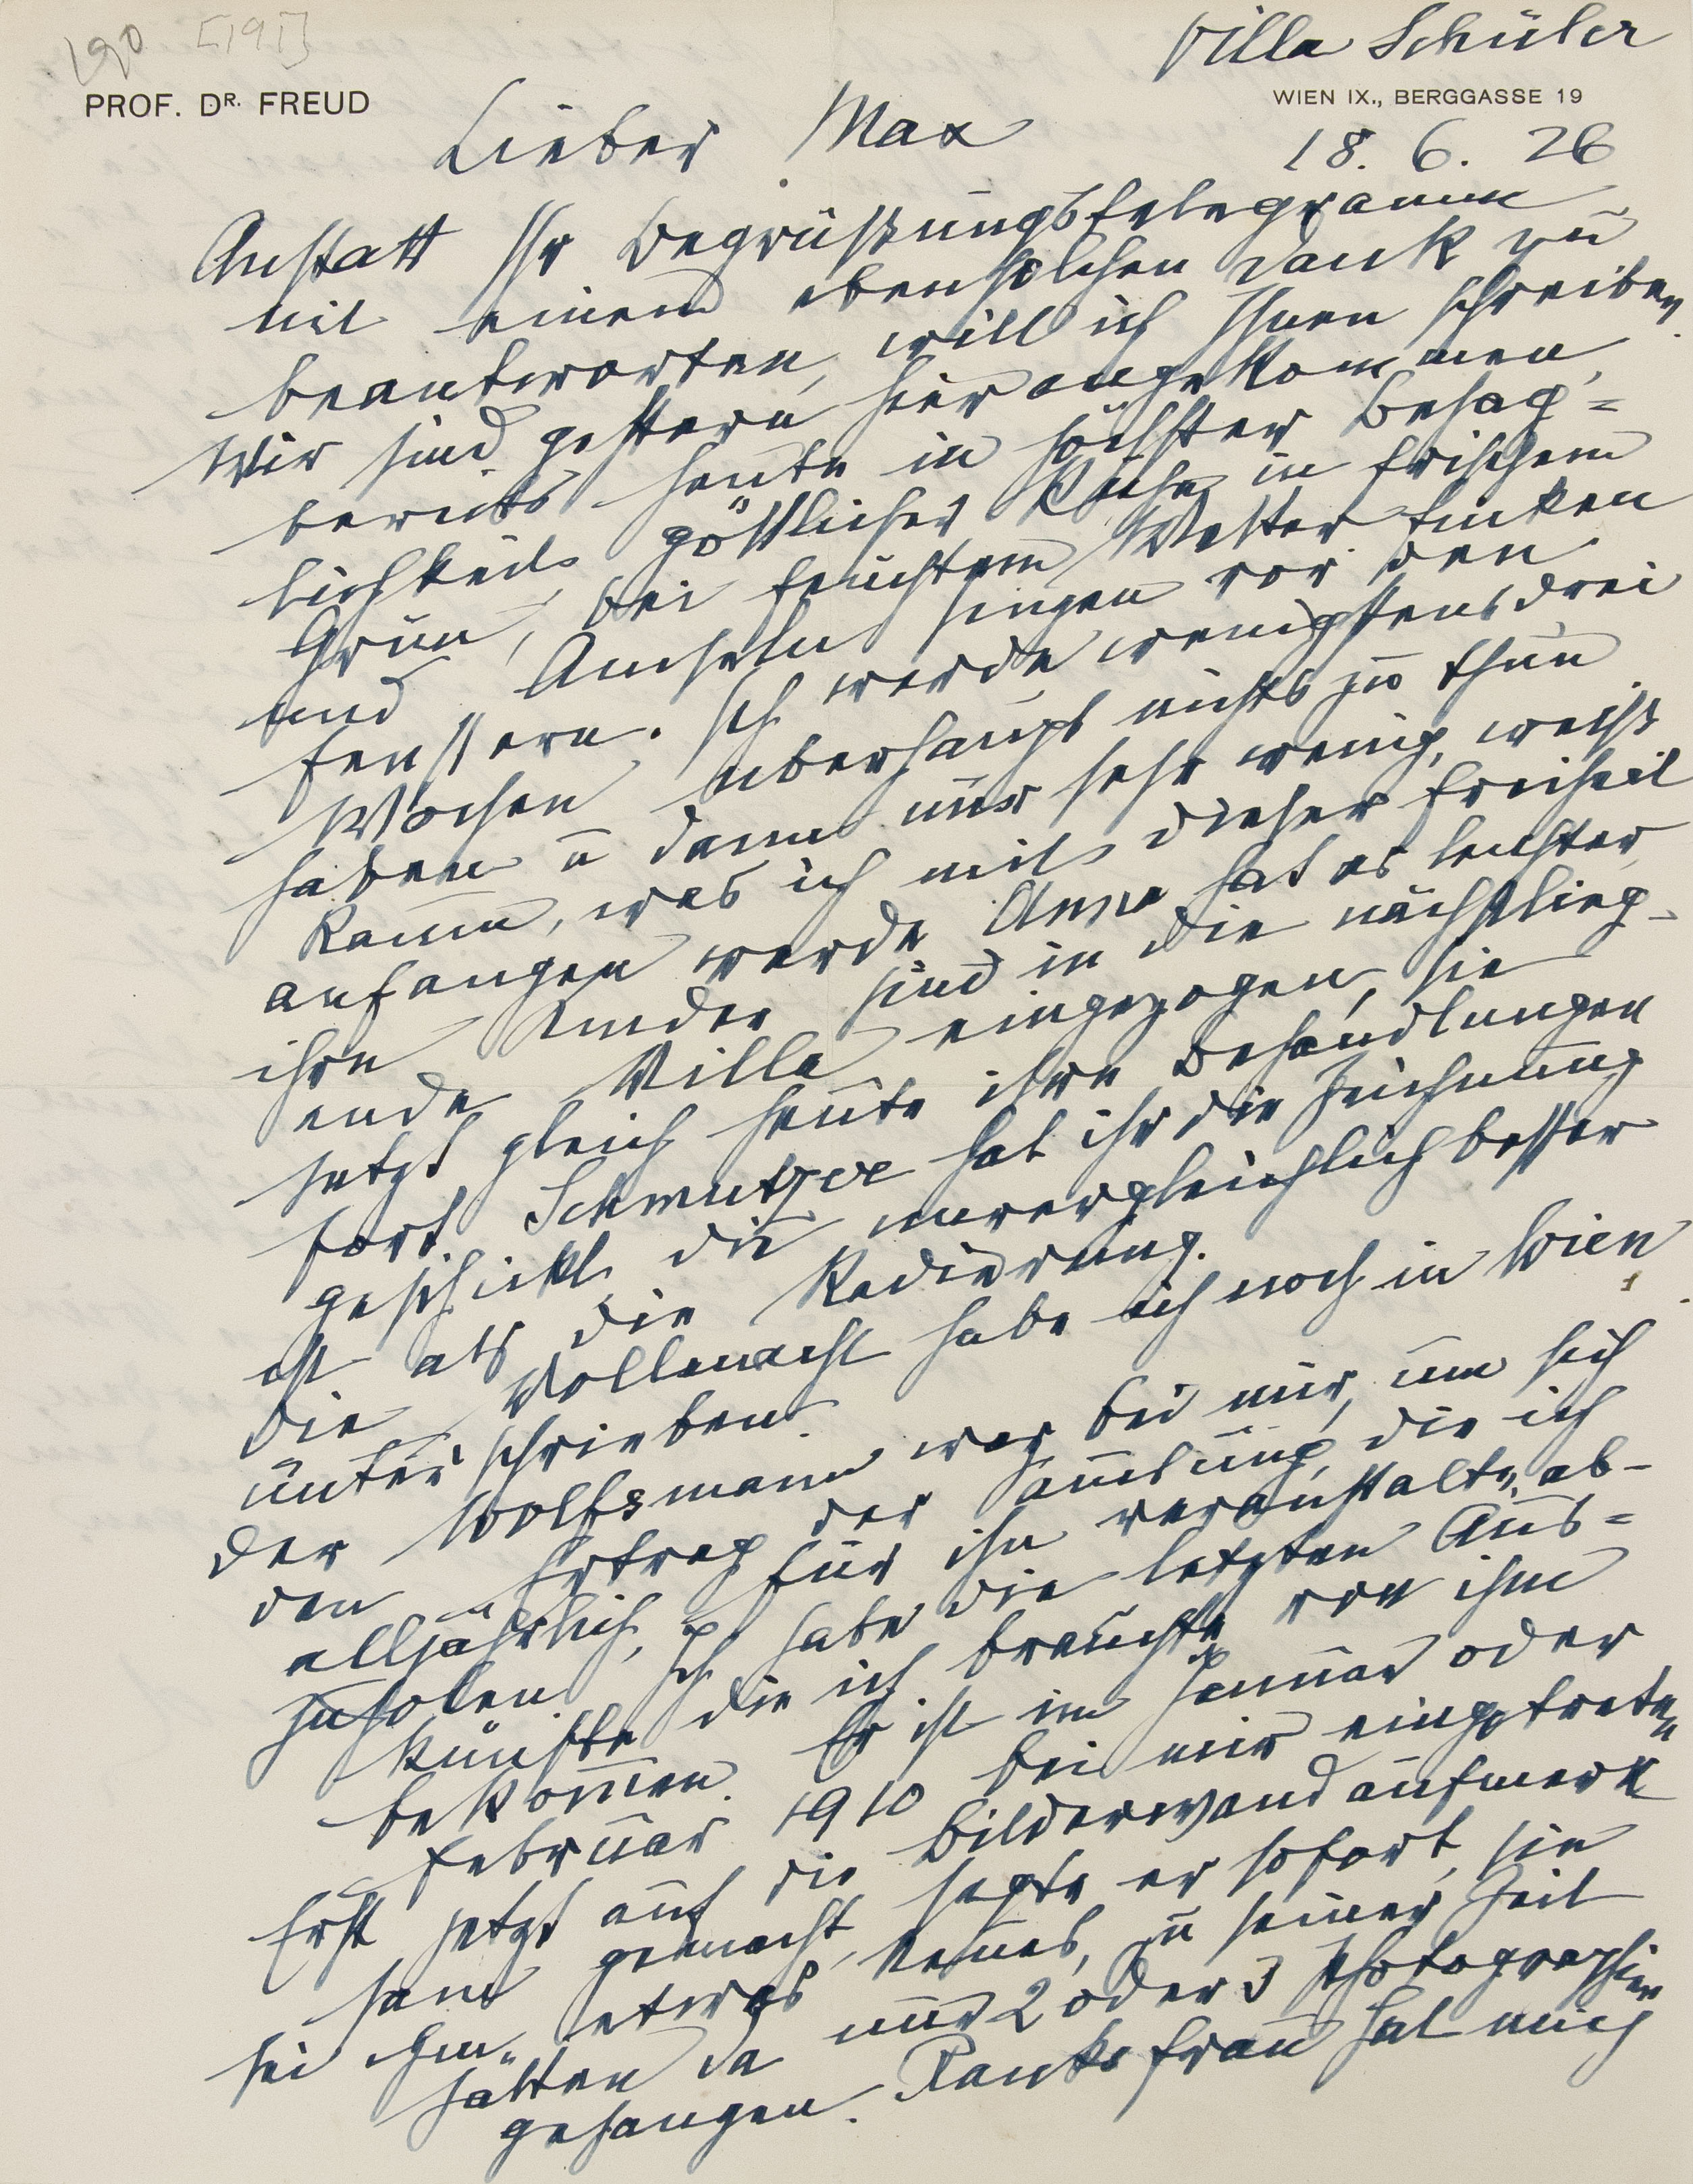 190 [191]
Villa Schüler
PROF. DR. FREUD
WIEN IX., BERGGASSE 19
18. 6. 26
Lieber Max
Anstatt Ihr Begrüßungstelegramm
mit einem ebensolchen Dank zu
beantworten, will ich Ihnen schreiben.
Wir sind gestern hier angekommen,
bereits heute in höchster Behag=
lichkeit, göttlicher Ruhe, in frischem
Grün, bei feuchtem Wetter Finken
und Amseln singen vor den
Fenstern. Ich werde wenigstens drei
Wochen überhaupt nichts zu thun
haben u dann nur sehr wenig, weiß
kaum, was ich mit dieser Freiheit
anfangen werde Anna hat es leichter,
ihre Kinder sind in die nächstlieg-
ende Villa eingezogen, sie
setzt gleich heute ihre Behandlungen
fort. Schmutzer hat ihr die Zeichnung
geschickt, die unvergleichlich besser
ist als die Radierung.
Die Vollmacht habe ich noch in Wien
unterschrieben.
Der Wolfsmann war bei mir, um sich
den Ertrag der Samlung, die ich
alljährlich für ihn veranstalte, ab-
zuholen. Ich habe die letzten Aus=
künfte die ich brauchte von ihm
bekomen. Er ist im Januar oder
Februar 1910 bei mir eingetreten
Erst jetzt auf die Bilderwand aufmerk
sam gemacht, sagte er sofort, sie
sei ihm etwas Neues, zu seiner Zeit
hätten da nur 2 oder 3 Photographien
gehangen. Ranks Frau hat mich